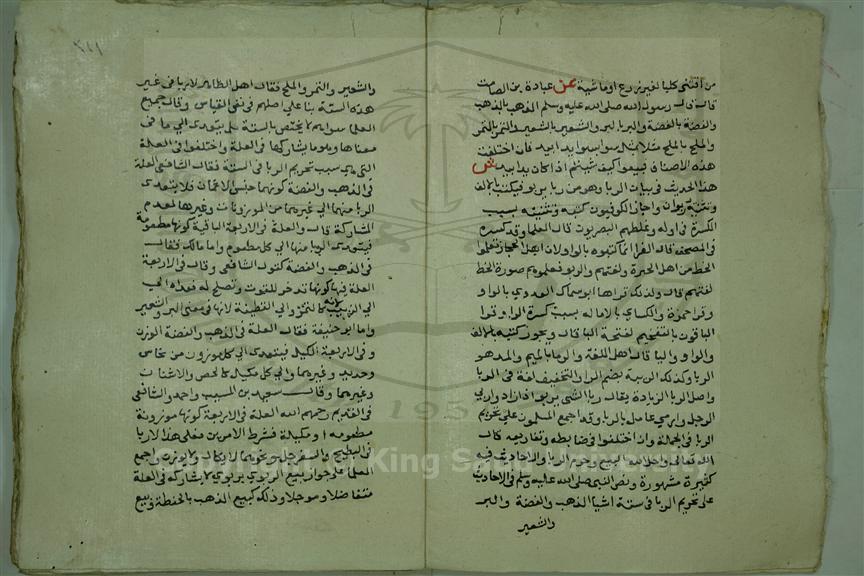 من اقتنى كلبا لغير زرع او ماشية عن عبادة بن الصامت
قال قال رسول الله صلى الله عليه وسلم الذهب بالذهب
والفضة بالفضة والبر بالبر والشعير بالشعير والتمر بالتمر
والملح بالملح مثلا بمثل سوا بسوا يدا بيد فان اختلفت
هذه الاصناف فبيعوا كيف شيتم اذا كان يدا بيد ش
هذا الحديث في بيان الربا وهو من ربا يربو فيكتب بالالف
وتثنيته ربوان واجاز الكوفيون كتبه وتثنيته بسبب
الكسرة في اوله وغلطهم البصريون قال العلما وقد كتبوه
في المصحف قال الفرا انما كتبوه بالواو لان اهل الحجاز تعلموا
الخط من اهل الحيرة ولغتهم والربو فعلموهم صورة الخط
لغتهم قال ولذلك قراها ابو سماك العدوي بالواو
وقرا حمزة والكساي بالاماله بسبب كسرة الراء وقرا
الباقون بالتفخيم لفتحة البا قال ويجوز كتبه بالالف
والواو واليا قال اهل اللغة والرما بالميم والمد هو
الربا وكذلك الربية بضم الرا والتخفيف لغة في الربا
واصل الربا الزيادة يقال ربا الشي يربو اذا زاد واربي
الرجل وارمي عامل بالربا وقد اجمع المسلمون على تحريم
الربا في الجملة وان اختلفوا في ضابطه وتفاريعه قال
الله تعالى واحل الله البيع وحرم الربا والاحاديث فيه
كثيرة مشهورة ونص النبي صلى الله عليه وسلم في الاحاديث
على تحريم الربا في ستة اشيا الذهب والفضة والبر
والشعير
٣٤١
والشعير والتمر والملح فقال اهل الظاهر لا ربا في غير
هذه الستة بنا على اصلهم في نفي القياس وقال جميع
العلما سواهم لا يختص بالستة بل يتعدى الي ما في
معناها وهو ما يشاركها في العلة واختلفوا في العلة
التي هي سبب تحريم الربا في الستة فقال الشافعي العلة
في الذهب والفضة كونهما جنس الاثمان فلا يتعدى
الربا منهما الي غيرهما من الموزونات وغيرها لعدم
المشاركة قال والعلة في الاربعة الباقية كونها مطعومة
فيتعدى الربا منها الي كل مطعوم واما مالك فقال
في الذهب والفضة كقول الشافعي وقال في الاربعة
العلة فيها كونها تدخر للقوت وتصلح له فعداه الي
الزبيب لانه كالتمر والي القطنية لانها في معنى البر والشعير
واما ابو حنيفة فقال العلة في الذهب والفضة الوزن
وفي الاربعة الكيل فيتعدى الي كل موزون من نحاس
وحديد وغيرهما والي كل مكيل كالجص والاشنان
وغيرهما وقال سعيد بن المسيب واحمد والشافعي
في القديم رحمهم الله العلة في الاربعة كونها موزونة
مطعومة او مكيلة فشرط الامرين فعلى هذا لا ربا
في البطيخ والسفرجل ونحوهما لا يكال ولا يوزن واجمع
العلما على جواز بيع الربوي بربوي لا يشاركه في العلة
متفاضلا وموجلا وذلك كبيع الذهب بالحنطة وبيع
1957
King Saud University